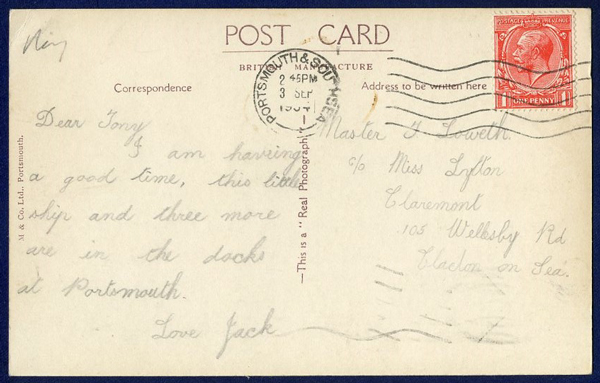 POST CARD
BRITISH MANUFACTURE
Correspondence
Address to be written here
PORTSMOUTH & SOUTHSEA
2 45PM
3 SEP
1934
1
POSTAGE REVENUE
ONE PENNY
Dear Tony
I am haveing
a good time, this little
ship and three more
are in the docks
at Portesmouth.
Love Jack
Master T Loweth.
c/o Miss Lytton
Claremont
105 Wellesby Rd
Clacton on Sea.
M & Co. Ltd., Portsmouth.
—This is a "Real Photograph"